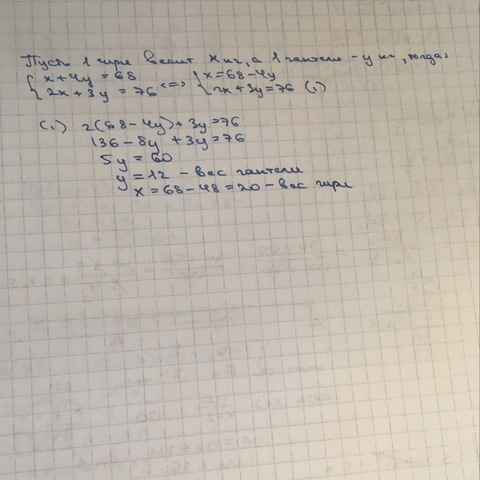 Пусть 1 гиря весит x кг, а 1 гантель - y кг, тогда:
{ x + 4y = 68 <=> { x = 68 - 4y
{ 2x + 3y = 76 { 2x + 3y = 76 (1)
(1) 2(68 - 4y) + 3y = 76
136 - 8y + 3y = 76
5y = 60
y = 12 - вес гантели
x = 68 - 48 = 20 - вес гири